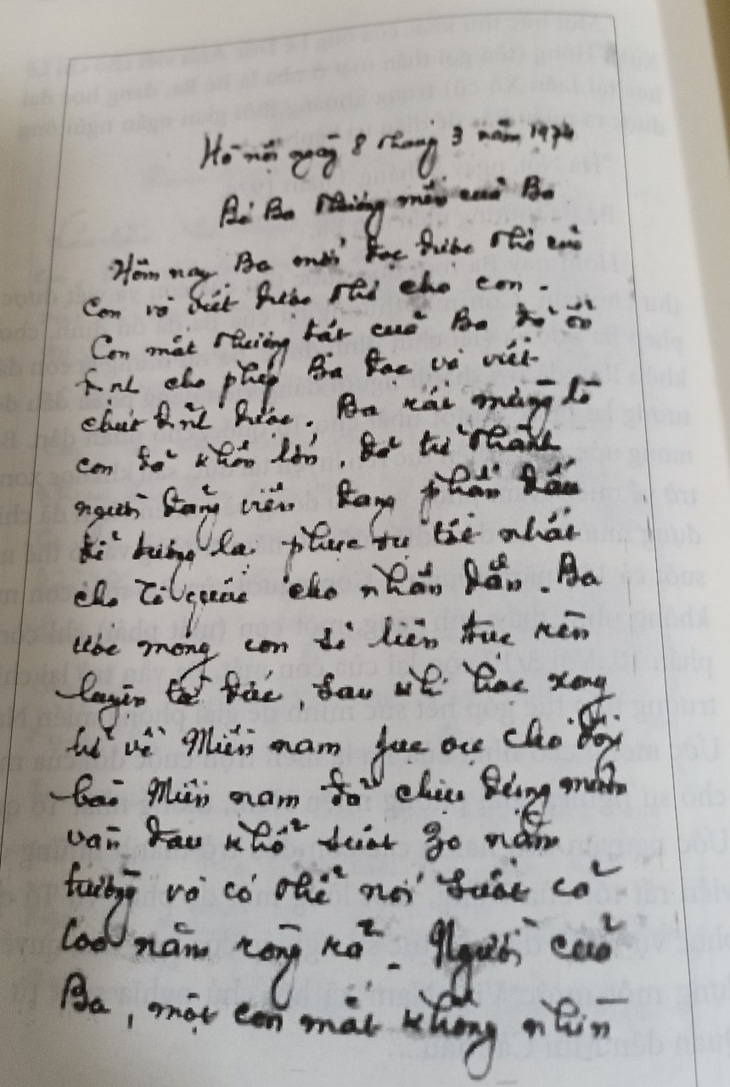 Hà nội ngày 8 tháng 3 năm 1974
Bé Ba thương mến của Ba
Hôm nay Ba mới đọc được thơ của
con và viết được thơ cho con.
Con mắt thương tật của Ba đã ổn
định cho phép Ba đọc và viết
chút đỉnh được. Ba rất mừng là
con đã khôn lớn, đã trở thành
người đảng viên đang phấn đấu
để tương lai phục vụ tốt nhất
cho Tổ quốc cho nhân dân. Ba
ước mong con sẽ liên tục rèn
luyện tài đức, sau khi học xong
trở về Miền nam phục vụ cho đồng
bào Miền nam đã chịu đựng muôn
vàn đau khổ suốt 30 năm
trường và có thể nói suốt cả
100 năm ròng rã. Người của
Ba, một con mắt không nhìn